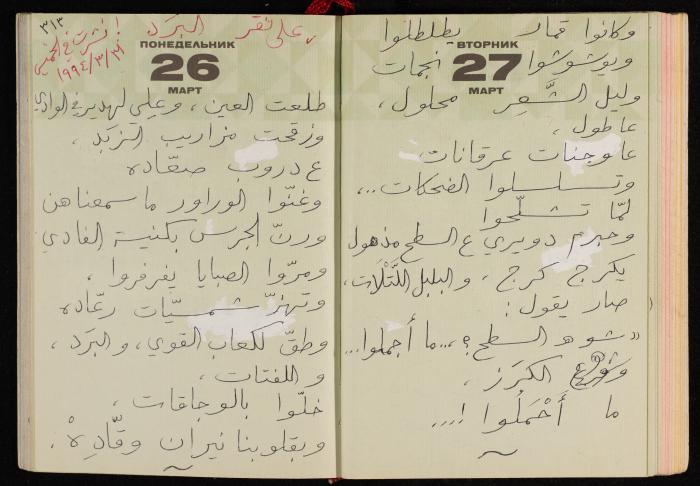 ٣١٣
على نقر البرَد
نشرت في الخميس
١٩٩٤/٣/٣١
ПОНЕДЕЛЬНИК
26
МАРТ
طلعت العين، وعلي لهدير في الوادي
وزقحت مزاريب الزبَد،
ع دروب صعّاده
وغنّوا الوراور ما سمعناهن
ورنّ الجرس بكنيسة الفادي
ومرّوا الصبايا يفرفروا،
وتهزّ شمسيّات رعّاده
وطقّ للكعاب القوي، والبرَد،
واللفتات،
خلّوا بالوجاقات،
وبقلوبنا نيران وقّادِهْ.
وكانوا قمالا يطلطلوا
ويوشوشوا نجمات
ВТОРНИК
27
МАРТ
وليل الشَّعر محلول،
عاطول،
عا وجنات عرقانات
وتسلسلوا الضحكات...،
لمّا تشلّحوا
وحبرم دويري ع السطح مذهول
يكرج كرج، والبلبل اللَّتْلَات،
صار يقول:
«شو هالسطح؟،...ما أجملوا...
الكرَز،
ما أَحْمَلُوا!...